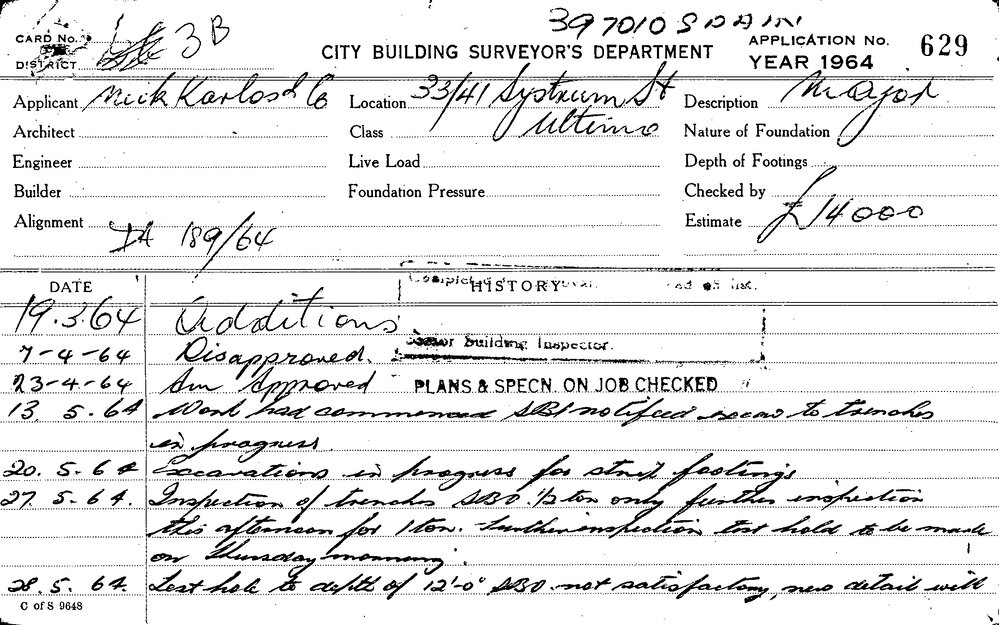 397010 SPAIN
CARD No. 3B
DISTRICT
CITY BUILDING SURVEYOR'S DEPARTMENT
APPLICATION No. 629
YEAR 1964
Applicant Nick Karlos & Co Location 33/41 Systrum St Description Major
Architect Class Ultimo Nature of Foundation
Engineer Live Load Depth of Footings
Builder Foundation Pressure Checked by
Alignment Estimate £14000
DA 189/64
DATE HISTORY
19.3.64 Additions
Senior Building Inspector.
7-4-64 Disapproved.
23-4-64 Am Approved PLANS & SPECN. ON JOB CHECKED
13. 5. 64 Work had commenced SBI notified excav to trenches
in progress.
20. 5. 64 Excavations in progress for strip footings
27. 5. 64. Inspection of trenches SBO. 1/2 ton only further inspection
this afternoon for 1 ton. Further inspection test hold to be made
on Thursday morning.
28. 5. 64. Test hole to depth of 12'-0" SBO not satisfactory, new detail will
C of S 9648